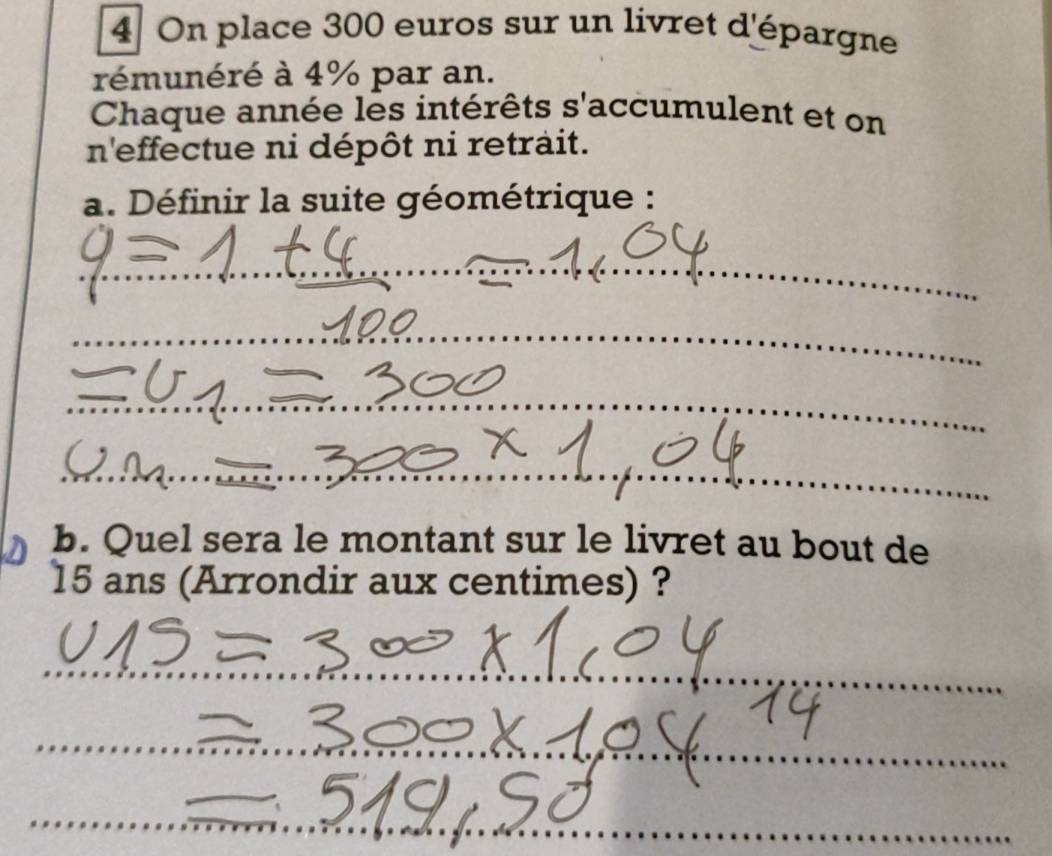 4 On place 300 euros sur un livret d'épargne
rémunéré à 4% par an.
Chaque année les intérêts s'accumulent et on
n'effectue ni dépôt ni retrait.
a. Définir la suite géométrique :
q = 1 + 4 = 1,04
100
= U1 = 300
Un = 300 × 1,04
b. Quel sera le montant sur le livret au bout de
15 ans (Arrondir aux centimes) ?
U15 = 300 × 1,04
= 300 × 1,04 14
= 519,50